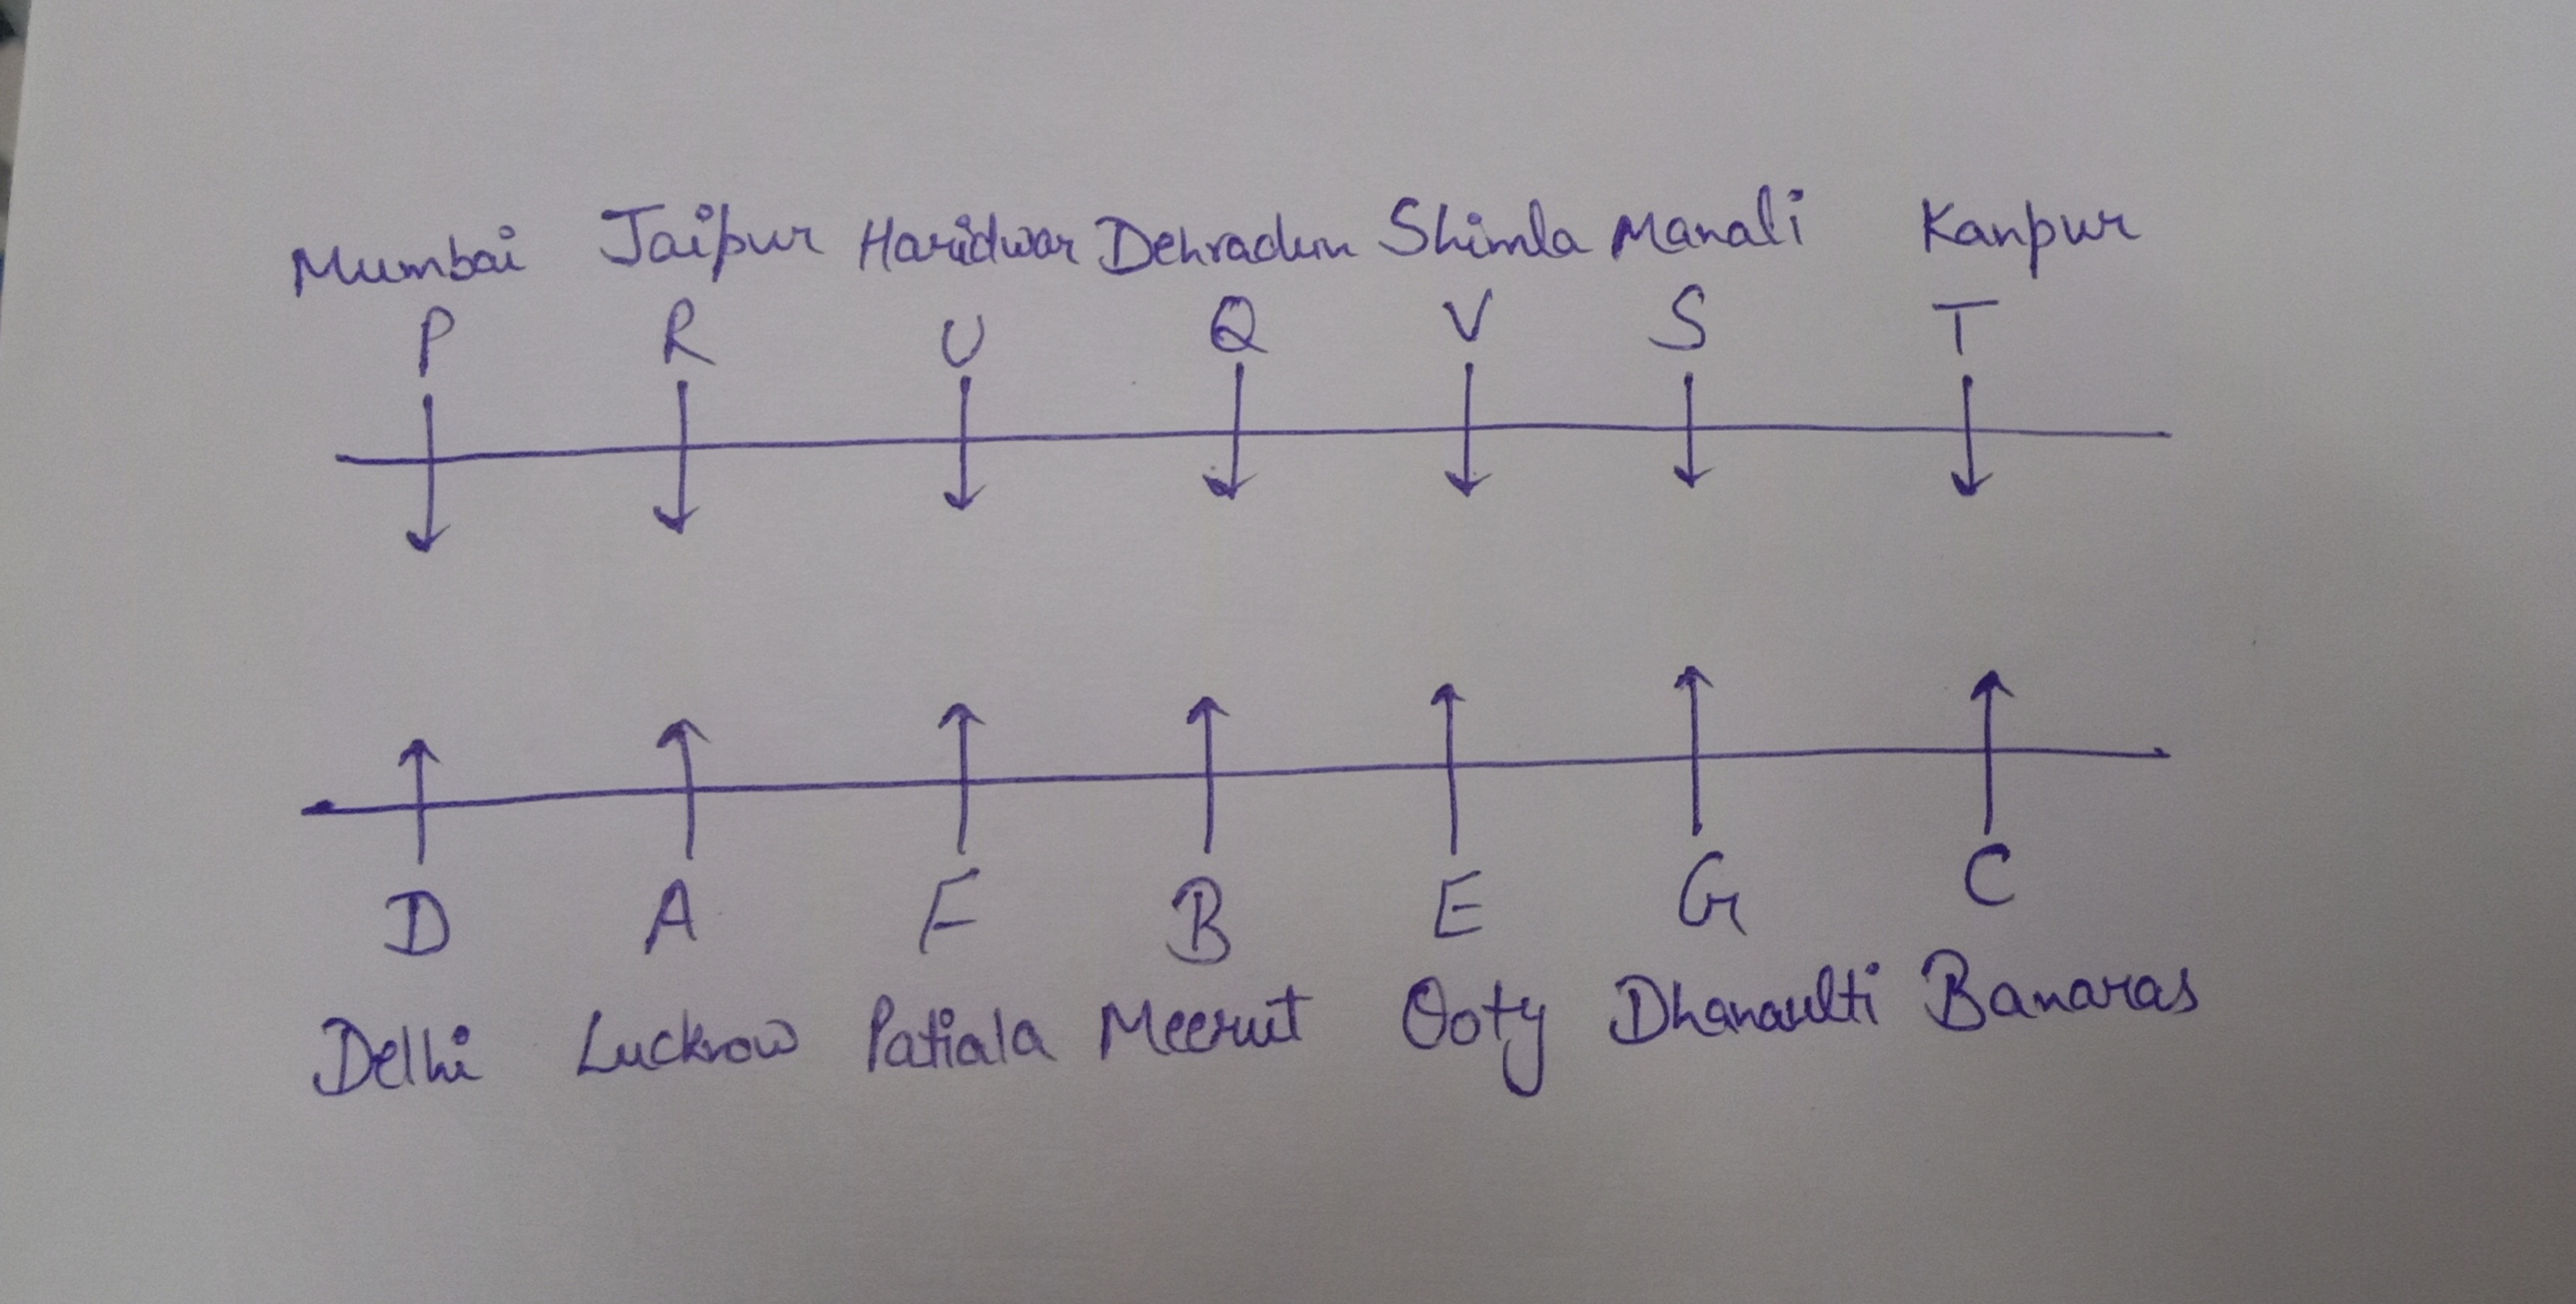 Mumbai Jaipur Haridwar Dehradun Shimla Manali Kanpur
P R U Q V S T
D A F B E G C
Delhi Lucknow Patiala Meerut Ooty Dhanaulti Banaras